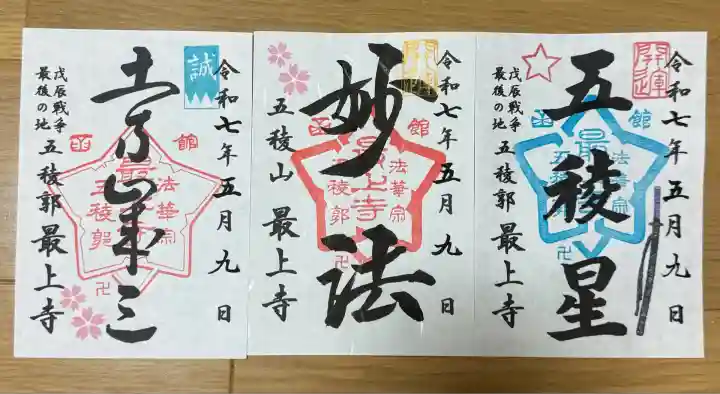 令和七年五月九日
開運
五稜星
函館
最上寺
法華宗
五稜郭
卍
戊辰戦争
最後の地
五稜郭 最上寺
令和七年五月九日
開運
妙法
函館
最上寺
法華宗
五稜郭
卍
五稜山 最上寺
令和七年五月九日
誠
土方歳三
函館
最
法華宗
五稜郭
卍
戊辰戦争
最後の地
五稜郭 最上寺